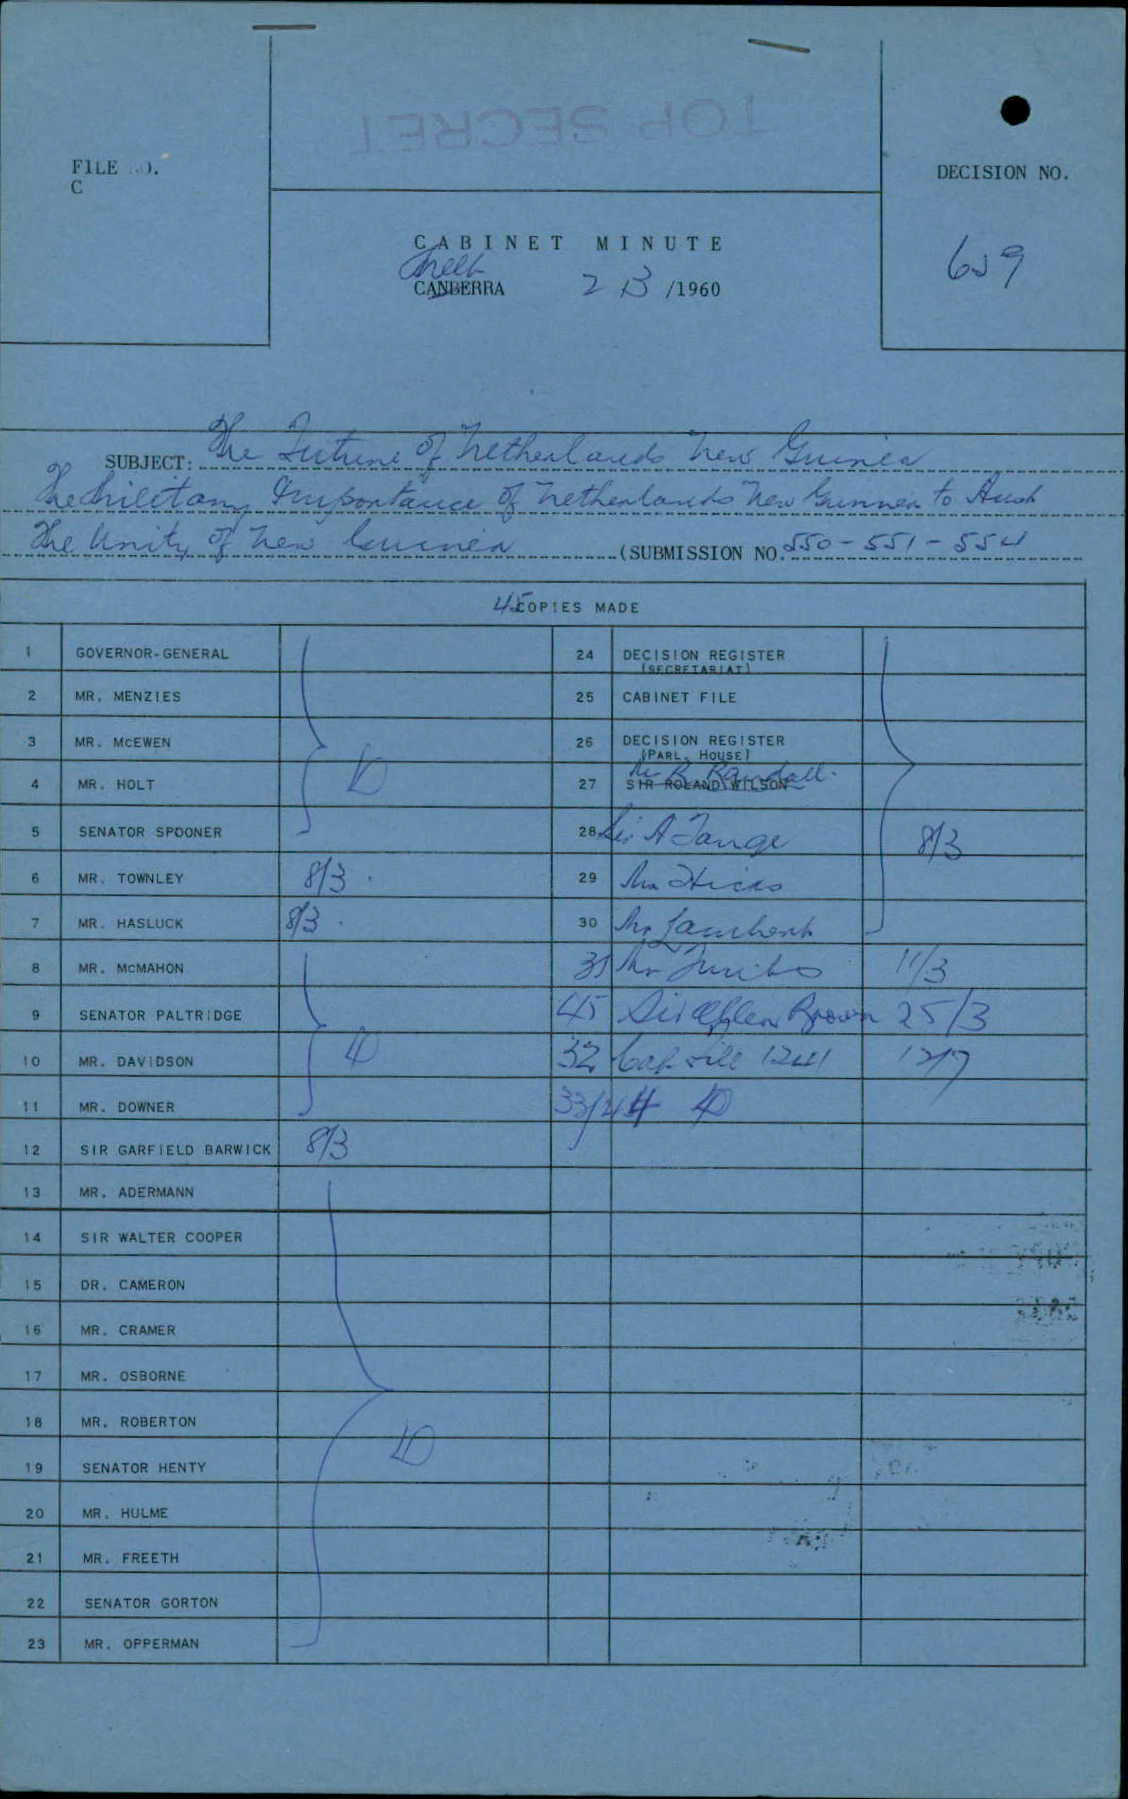 TOP SECRET
FILE NO.
C
DECISION NO.
CABINET MINUTE
CANBERRA 2/3/1960
659
SUBJECT: The Future of Netherlands New Guinea
The Military Importance of Netherlands New Guinea to Aust
The Unity of New Guinea (SUBMISSION NO. 550-551-554
45 COPIES MADE
1 GOVERNOR-GENERAL 24 DECISION REGISTER
(SECRETARIAT)
2 MR. MENZIES 25 CABINET FILE
3 MR. McEWEN 26 DECISION REGISTER
(PARL. HOUSE)
4 MR. HOLT 27 SIR ROLAND WILSON Mr R. Randall.
5 SENATOR SPOONER 28 Sir A Tange 8/3
6 MR. TOWNLEY 8/3 29 Mr Hicks
7 MR. HASLUCK 8/3 30 Mr Lambert
8 MR. McMAHON 31 Mr 11/3
9 SENATOR PALTRIDGE 45 Sir Allen Brown 25/3
10 MR. DAVIDSON 32 file 1241 12/7
11 MR. DOWNER 33/44
12 SIR GARFIELD BARWICK 8/3
13 MR. ADERMANN
14 SIR WALTER COOPER
15 DR. CAMERON
16 MR. CRAMER
17 MR. OSBORNE
18 MR. ROBERTON
19 SENATOR HENTY
20 MR. HULME
21 MR. FREETH
22 SENATOR GORTON
23 MR. OPPERMAN